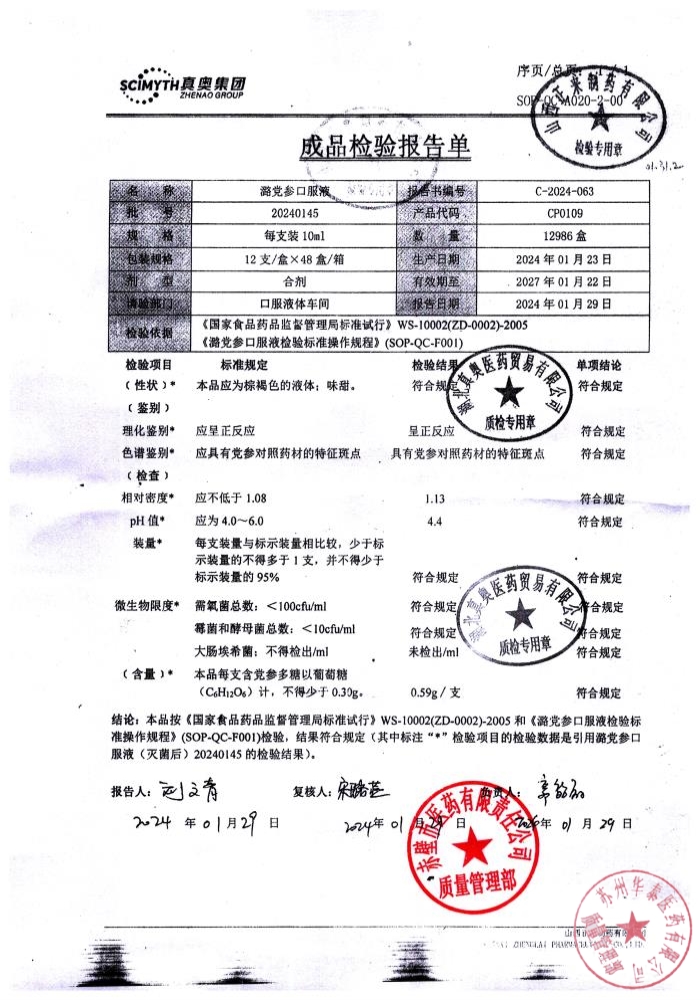 SCIMYTH 真奥集团
ZHENAO GROUP
序页/总页: 1 / 1
SOP-QC-A020-2-00
检验专用章
01.31.2
成品检验报告单
名 称 潞党参口服液 报告书编号 C-2024-063
批 号 20240145 产品代码 CP0109
规 格 每支装 10ml 数 量 12986 盒
包装规格 12 支/盒×48 盒/箱 生产日期 2024 年 01 月 23 日
剂 型 合剂 有效期至 2027 年 01 月 22 日
请验部门 口服液体车间 报告日期 2024 年 01 月 29 日
检验依据 《国家食品药品监督管理局标准试行》WS-10002(ZD-0002)-2005
《潞党参口服液检验标准操作规程》(SOP-QC-F001)
检验项目 标准规定 检验结果 单项结论
(性状)* 本品应为棕褐色的液体;味甜。 符合规定 符合规定
(鉴别)
理化鉴别* 应呈正反应 呈正反应 符合规定
色谱鉴别* 应具有党参对照药材的特征斑点 具有党参对照药材的特征斑点 符合规定
(检查)
相对密度* 应不低于 1.08 1.13 符合规定
pH 值* 应为 4.0～6.0 4.4 符合规定
装量* 每支装量与标示装量相比较，少于标
示装量的不得多于 1 支，并不得少于
标示装量的 95% 符合规定 符合规定
微生物限度* 需氧菌总数：＜100cfu/ml 符合规定 符合规定
霉菌和酵母菌总数：＜10cfu/ml 符合规定 符合规定
大肠埃希菌：不得检出/ml 未检出/ml 符合规定
(含量)* 本品每支含党参多糖以葡萄糖
(C₆H₁₂O₆) 计，不得少于 0.30g。 0.59g / 支 符合规定
湖北真奥医药贸易有限公司
质检专用章
湖北真奥医药贸易有限公司
质检专用章
结论：本品按《国家食品药品监督管理局标准试行》WS-10002(ZD-0002)-2005 和《潞党参口服液检验标
准操作规程》(SOP-QC-F001)检验，结果符合规定（其中标注“*”检验项目的检验数据是引用潞党参口
服液（灭菌后）20240145 的检验结果）。
报告人： 刘文青 复核人： 负责人：
2024 年 01 月 29 日 2024 年 01 月 29 日 年 01 月 29 日
赤壁市医药有限责任公司
质量管理部
苏州华泰医药有限公司